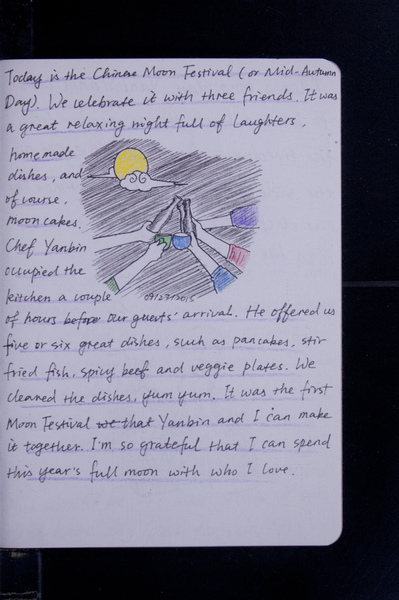 Today is the Chinese Moon Festival (or Mid-Autumn
Day). We celebrate it with three friends. It was
a great relaxing night full of laughters,
homemade
dishes, and
of course,
moon cakes.
Chef Yanbin
occupied the
kitchen a couple
09/27/2015
of hours before our guests' arrival. He offered us
five or six great dishes, such as pancakes, stir
fried fish, spicy beef and veggie plates. We
cleaned the dishes, yum yum. It was the first
Moon Festival we that Yanbin and I can make
it together. I'm so grateful that I can spend
this year's full moon with who I love.